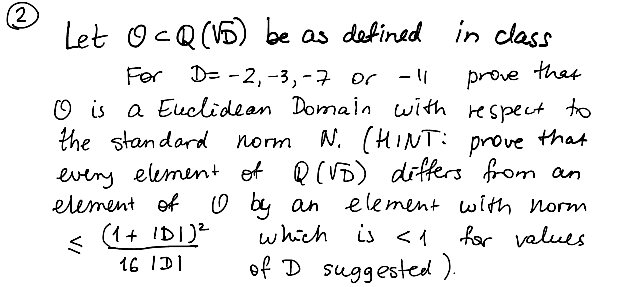 ②
Let O ⊂ Q(√D) be as defined in class
For D = -2, -3, -7 or -11 prove that
O is a Euclidean Domain with respect to
the standard norm N. (HINT: prove that
every element of Q(√D) differs from an
element of O by an element with norm
≤ (1 + |D|)² / 16 |D| which is < 1 for values
of D suggested).